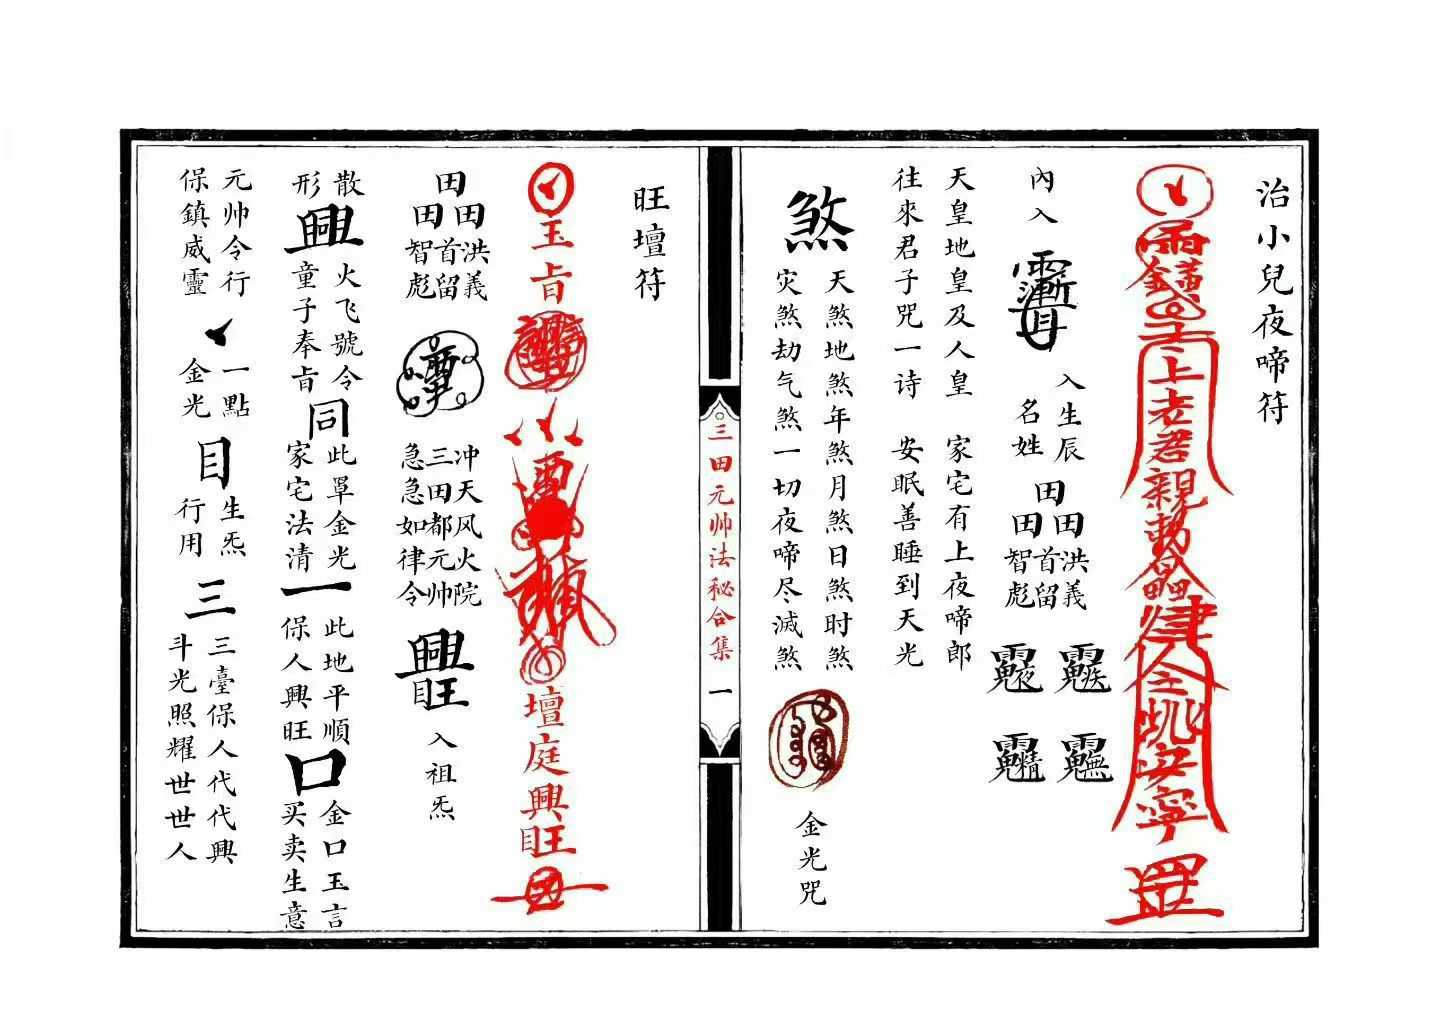 治小兒夜啼符
上老君親勅
令
安寧
罡
內入
入生辰
名姓
田
田田
洪義
首留
智彪
天皇地皇及人皇 家宅有上夜啼郎
往來君子咒一诗 安眠善睡到天光
煞
天煞地煞年煞月煞日煞时煞
灾煞劫气煞一切夜啼尽滅煞
金光咒
三田元帅法秘合集 一
旺壇符
玉旨
壇庭興旺
田
田田
洪義
首留
智彪
冲天风火院
三田都元帅
急急如律令
興旺
入祖炁
散形
興
火飞號令
童子奉旨
同
此罩金光
家宅法清
一
此地平順
保人興旺
口
金口玉言
买卖生意
元帅令行
保鎮威靈
一點
金光
目
生炁
行用
三
三臺保人代代興
斗光照耀世世人